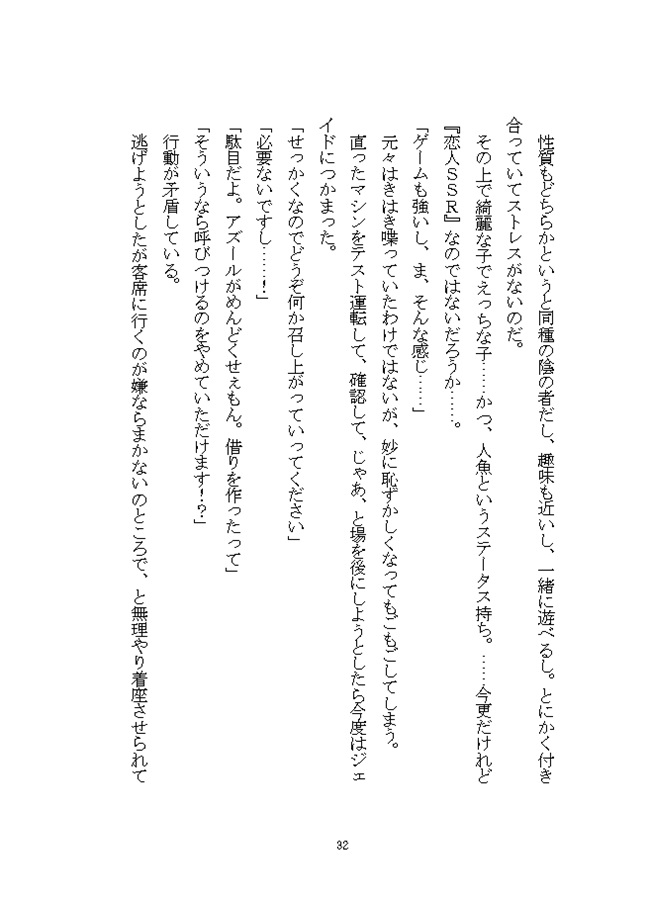 性質もどちらかというと同種の陰の者だし、趣味も近いし、一緒に遊べるし。とにかく付き
合っていてストレスがないのだ。
その上で綺麗な子でえっちな子……かつ、人魚というステータス持ち。……今更だけれど
『恋人ＳＳＲ』なのではないだろうか……。
「ゲームも強いし、ま、そんな感じ……」
元々はきはき喋っていたわけではないが、妙に恥ずかしくなってもごもごしてしまう。
直ったマシンをテスト運転して、確認して、じゃあ、と場を後にしようとしたら今度はジェ
イドにつかまった。
「せっかくなのでどうぞ何か召し上がっていってください」
「必要ないですし……！」
「駄目だよ。アズールがめんどくせぇもん。借りを作ったって」
「そういうなら呼びつけるのをやめていただけます！？」
行動が矛盾している。
逃げようとしたが客席に行くのが嫌ならまかないのところで、と無理やり着座させられて
32